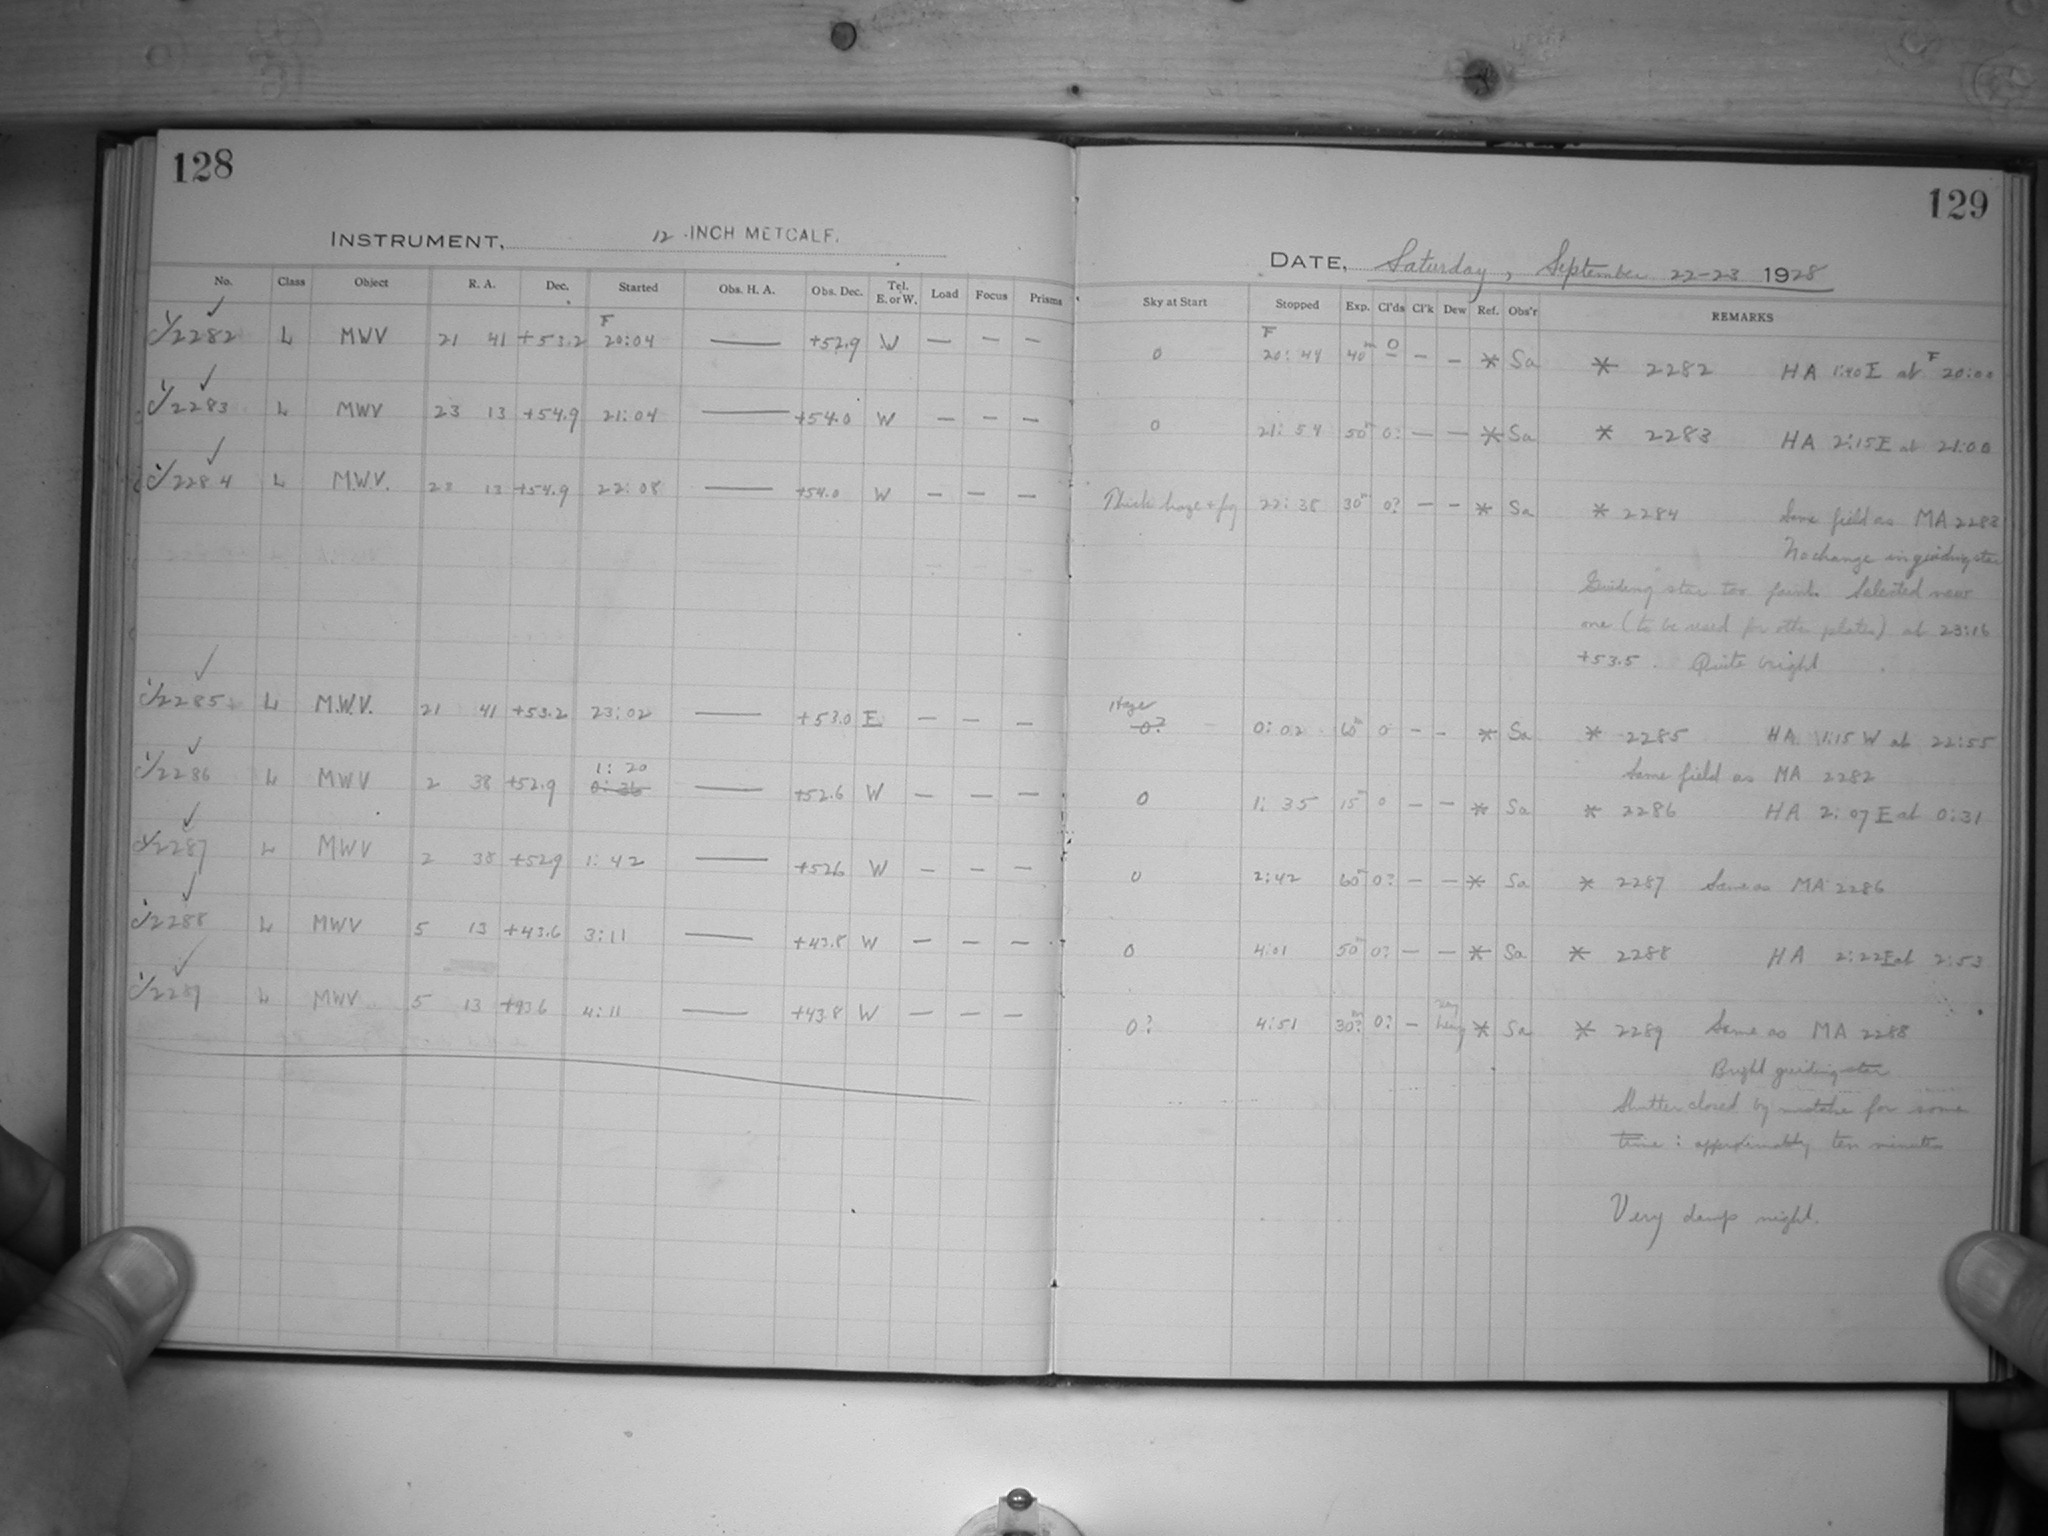 128
INSTRUMENT, 12 -INCH METCALF.
No. Class Object R. A. Dec. Started Obs. H. A. Obs. Dec. Tel. E. or W. Load Focus Prisms
2282 L MWV 21 41 +53.2 F 20:04 — +52.9 W — — —
2283 L MWV 23 13 +54.9 21:04 — +54.0 W — — —
2284 L M.W.V. 23 13 +54.9 22:08 — +54.0 W — — —
2285 L M.W.V. 21 41 +53.2 23:02 — +53.0 E — — —
2286 L MWV 2 38 +52.9 1:20 0:36 — +52.6 W — — —
2287 L MWV 2 38 +52.9 1:42 — +52.6 W — — —
2288 L MWV 5 13 +43.6 3:11 — +43.8 W — — —
2289 L MWV 5 13 +43.6 4:11 — +43.8 W — — —
129
DATE, Saturday, September 22-23 1928
Sky at Start Stopped Exp. Cl'ds Cl'k Dew Ref. Obs'r REMARKS
0 F 20:44 40m 0 — — * Sa * 2282 HA 1:40 E at F 20:00
0 21:54 50m 0? — — * Sa * 2283 HA 2:15 E at 21:00
Thick haze + fog 22:38 30m 0? — — * Sa * 2284 Same field as MA 2283
No change in guiding star
Guiding star too faint. Selected new
one (to be used for other plates) at 23:16
+53.5. Quite bright
Haze 0? 0:02 60m 0 — — * Sa * 2285 HA 1:15 W at 22:55
Same field as MA 2282
0 1:35 15m 0 — — * Sa * 2286 HA 2:07 E at 0:31
0 2:42 60m 0? — — * Sa * 2287 Same as MA 2286
0 4:01 50m 0? — — * Sa * 2288 HA 2:22 E at 2:53
0? 4:51 30m? 0? — very heavy * Sa * 2289 Same as MA 2288
Bright guiding star
Shutter closed by mistake for some
time: approximately ten minutes
Very damp night.